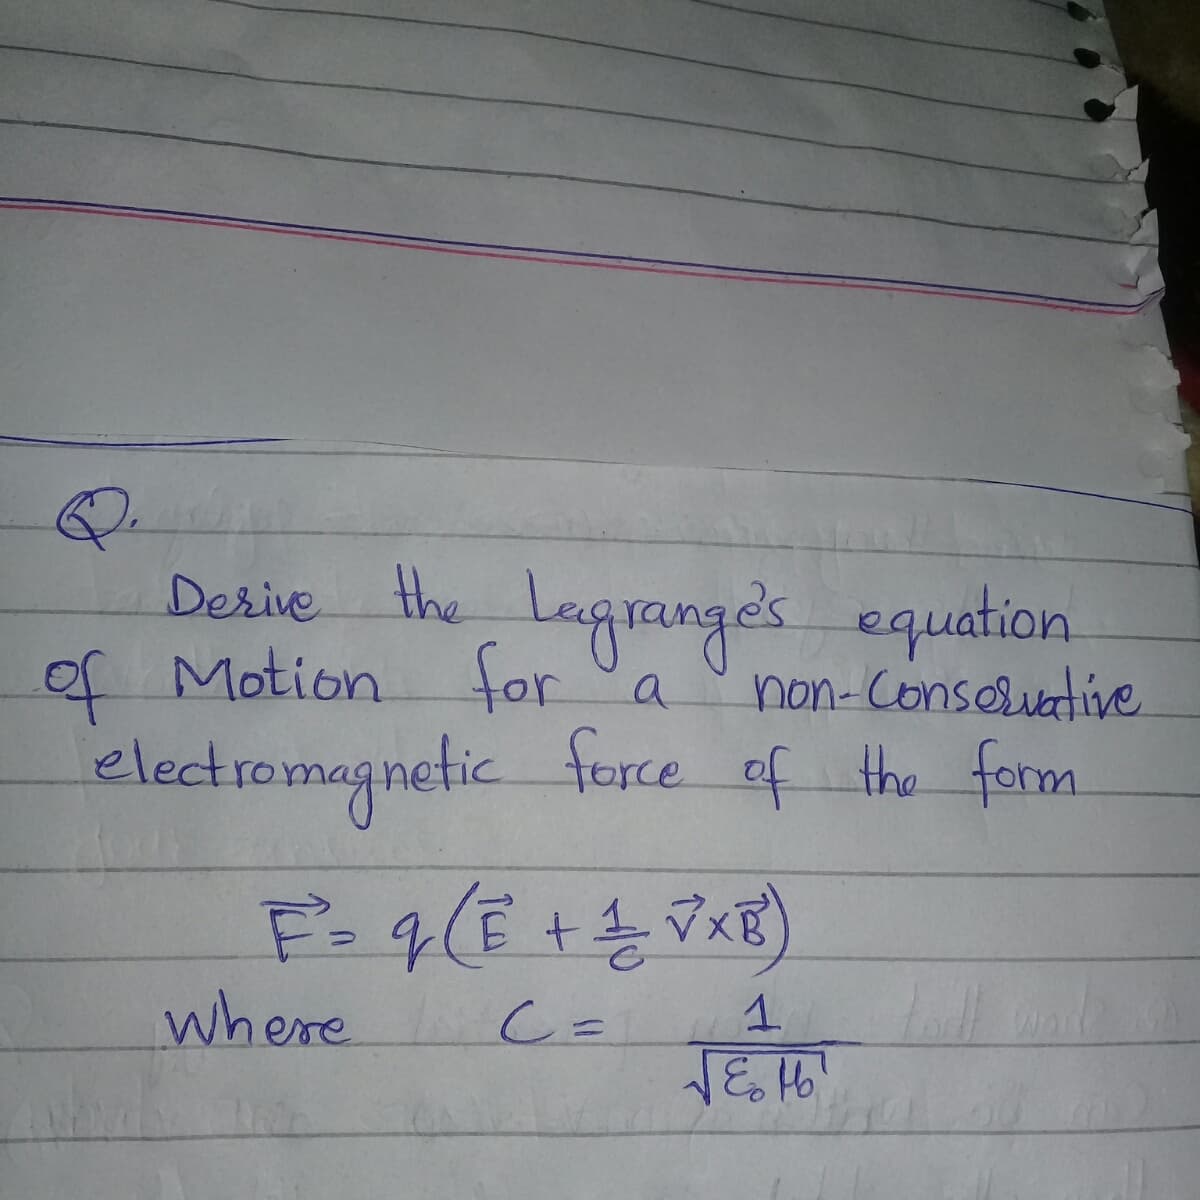 Q.
Derive the Lagrange's equation
of Motion for a non-Conservative
electromagnetic force of the form
F⃗ = q(E⃗ + 1/c v⃗×B⃗)
where C = 1/√ε₀ μ₀